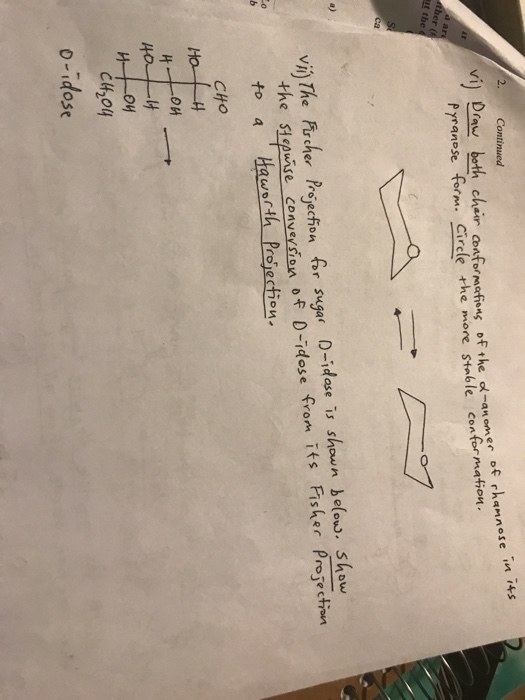 2. Continued
vi) Draw both chair conformations of the α-anomer of rhamnose in its
pyranose form. Circle the more stable conformation.
vii) The Fischer Projection for sugar D-idose is shown below. Show
the stepwise conversion of D-idose from its Fisher Projection
to a Haworth Projection.
CHO
HO H
H OH
HO H
H OH
CH₂OH
D-idose
a)